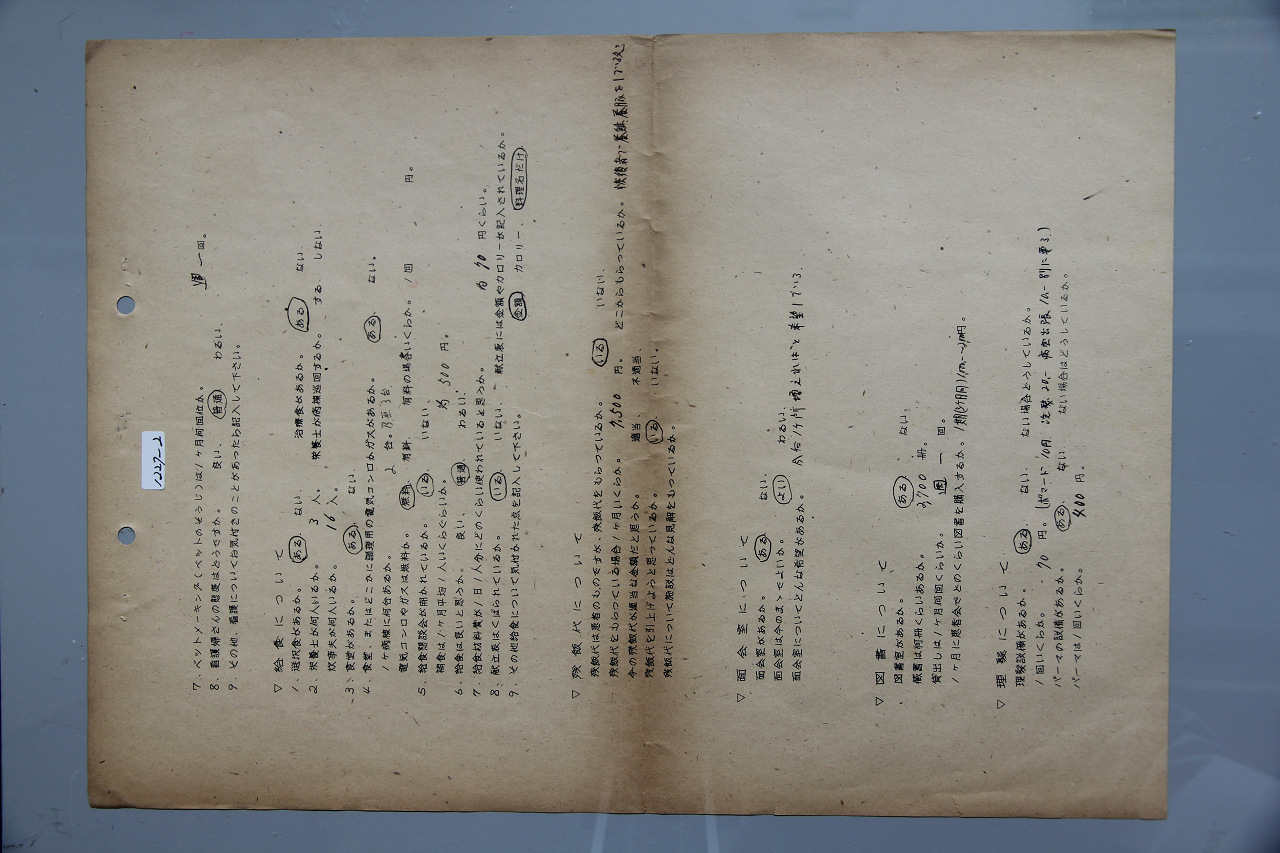 7、ベットメーキング(ベットのそうじ)は1ヶ月何回位か。 週 一 回。
8、看護婦さんの態度はどうですか。 良い、 普通、 わるい、
9、その他、看護についてお気付きのことがあったら記入して下さい。
▽ 給食について
1、選択食があるか。 ある ない、 治療食があるか。 ある ない、
2、栄養士が何人いるか。 3 人。 栄養士が病棟巡回するか。 する しない、
炊事夫が何人いるか。 16 人。
3、食堂があるか。 ある、 ない、
4、食堂、またはどこかに調理用の電気コンロかガスがあるか。 ある、 ない。
1ヶ病棟に何台あるか。 2 台。乃至3台
電気コンロやガスは無料か。 無料 有料 有料の場合いくらか。 1回 円。
5、給食懇談会が開かれているか。 いる いない、
補食は1ヶ月平均1人いくらぐらいか。 約 500 円。
6、給食は良いと思うか。 良い、 普通、 わるい、
7、給食材料費が1日1人分にどのくらい使われていると思うか。 約 90 円くらい。
8、献立表はくばられているか。 いる いない、 献立表には金額やカロリーが記入されているか。
9、その他給食について気付かれた点を記入して下さい。 金額 カロリー、 料理名だけ
▽ 残飯代について
残飯代は患者のものですが、残飯代をもらっているか。 いる いない、
残飯代をもらっている場合1ヶ月いくらか。 9,500 円。 どこからもらっているか。
今の残飯代が適当な金額だと思うか。 適当、 不適当、
残飯代を引上げようと思っているか。 いる いない、
残飯代について施設はどんな見解をもっているか。
▽ 面会室について
面会室があるか。 ある ない、
面会室は今のまゝでよいか。 よい わるい、
面会室についてどんな希望があるか。 1ヶ所 増えればと希望している
▽ 図書について
図書室があるか。 ある ない、
蔵書は何冊くらいあるか。 2700 冊。
貸出しは1ヶ月何回くらいか。 週 一 回。
1ヶ月に患者会でどのくらい図書を購入するか。 円。
▽ 理髪について
理髪設備があるか。 ある ない、 ない場合どうしているか。
1回いくらか。 90 円。(ポマード10円 洗髪20.- 病室出張10.- 別に要る)
パーマの設備があるか。 ある ない、 ない場合はどうしているか。
パーマは1回いくらか。 400 円。
1227-2